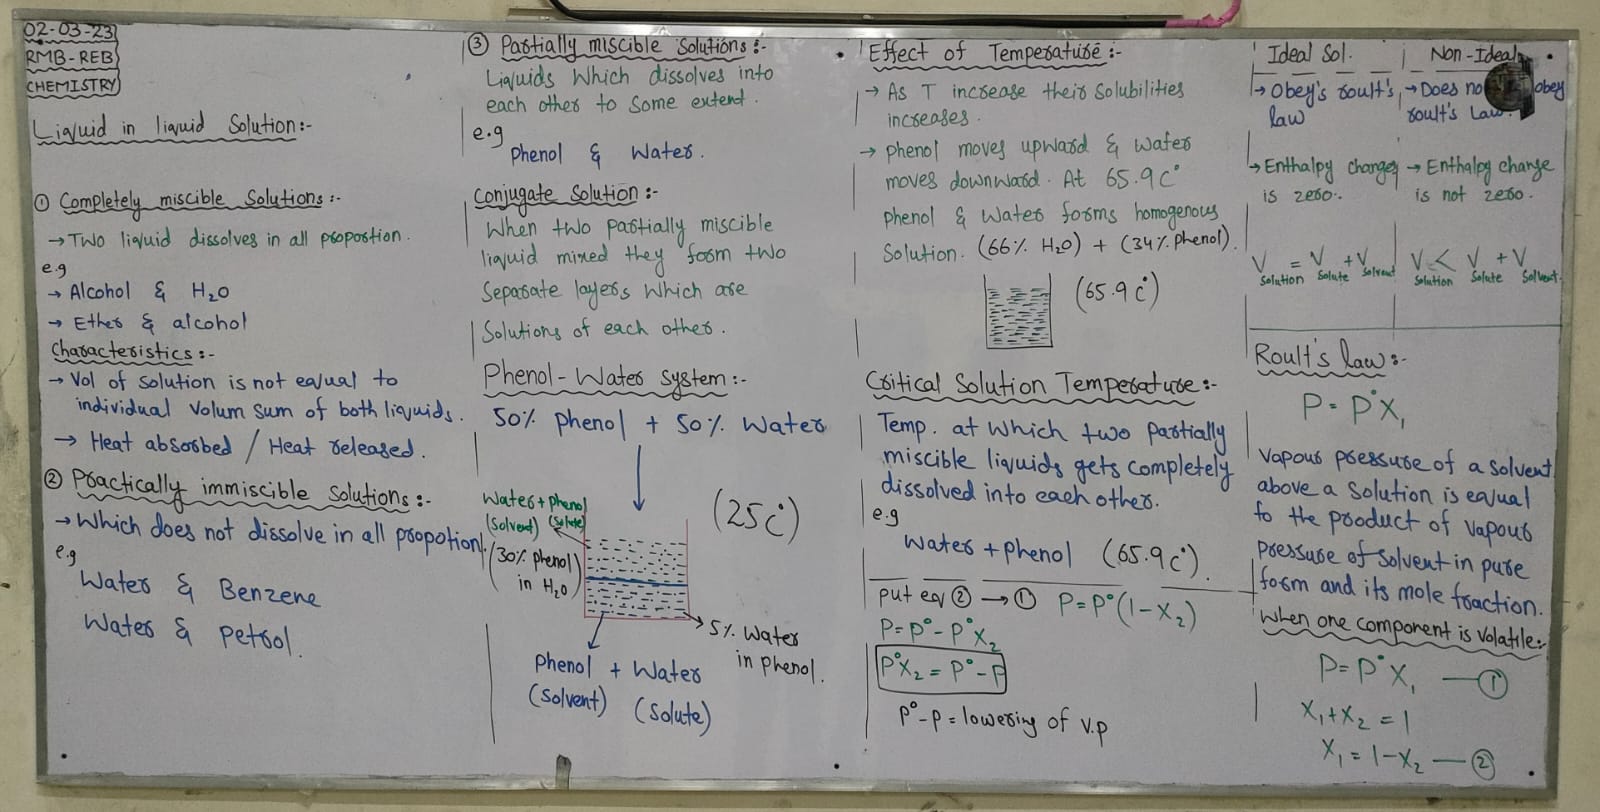 02-03-23
RMB-REB
CHEMISTRY
Liquid in liquid Solution:-
① Completely miscible Solutions:-
→ Two liquid dissolves in all proportion.
e.g
→ Alcohol & H₂O
→ Ether & alcohol
Characteristics:-
→ Vol of solution is not equal to
individual Volum sum of both liquids.
→ Heat absorbed / Heat released.
② Practically immiscible solutions:-
→ Which does not dissolve in all propotion.
e.g
Water & Benzene
Water & petrol.
③ Partially miscible Solutions:-
Liquids Which dissolves into
each other to Some extent.
e.g
Phenol & Water.
Conjugate Solution:-
When two partially miscible
liquid mixed they form two
Separate layers Which are
Solutions of each other.
Phenol-Water system:-
50% phenol + 50% Water
Water + phenol
(Solvent) (Solute)
(30% phenol
in H₂O)
(25c°)
5% Water
in phenol.
Phenol + Water
(Solvent) (Solute)
Effect of Temperature:-
→ As T increase their Solubilities
increases.
→ phenol moves upward & water
moves downward. At 65.9c°
phenol & Water forms homogenous
Solution. (66% H₂O) + (34% phenol).
(65.9c°)
Critical Solution Temperature:-
Temp. at which two partially
miscible liquids gets completely
dissolved into each other.
e.g
Water + phenol (65.9c°).
put eq ② → ① P=P°(1-X₂)
P=P°-P°X₂
P°X₂ = P°-P
P°-P = lowering of v.p
Ideal Sol. Non-Ideal
→ Obey's roult's → Does no obey
law roult's Law.
→ Enthalpy changes → Enthalpy change
is zero. is not zero.
V Solution = V Solute + V Solvent V Solution < V Solute + V Solvent
Roult's law:-
P = P°X₁
Vapour pressure of a Solvent
above a Solution is equal
to the product of vapour
pressure of solvent in pure
form and its mole fraction.
When one component is Volatile:-
P = P°X₁ —①
X₁+X₂ = 1
X₁ = 1-X₂ —②